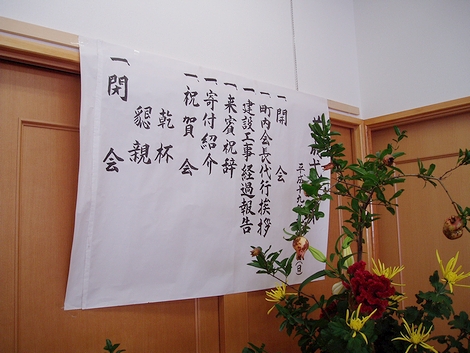 平成十九
(日)
一、開会
一、町内会長代行挨拶
一、建設工事経過報告
一、来賓祝辞
一、寄付紹介
一、祝賀会
乾杯
懇親
一、閉会